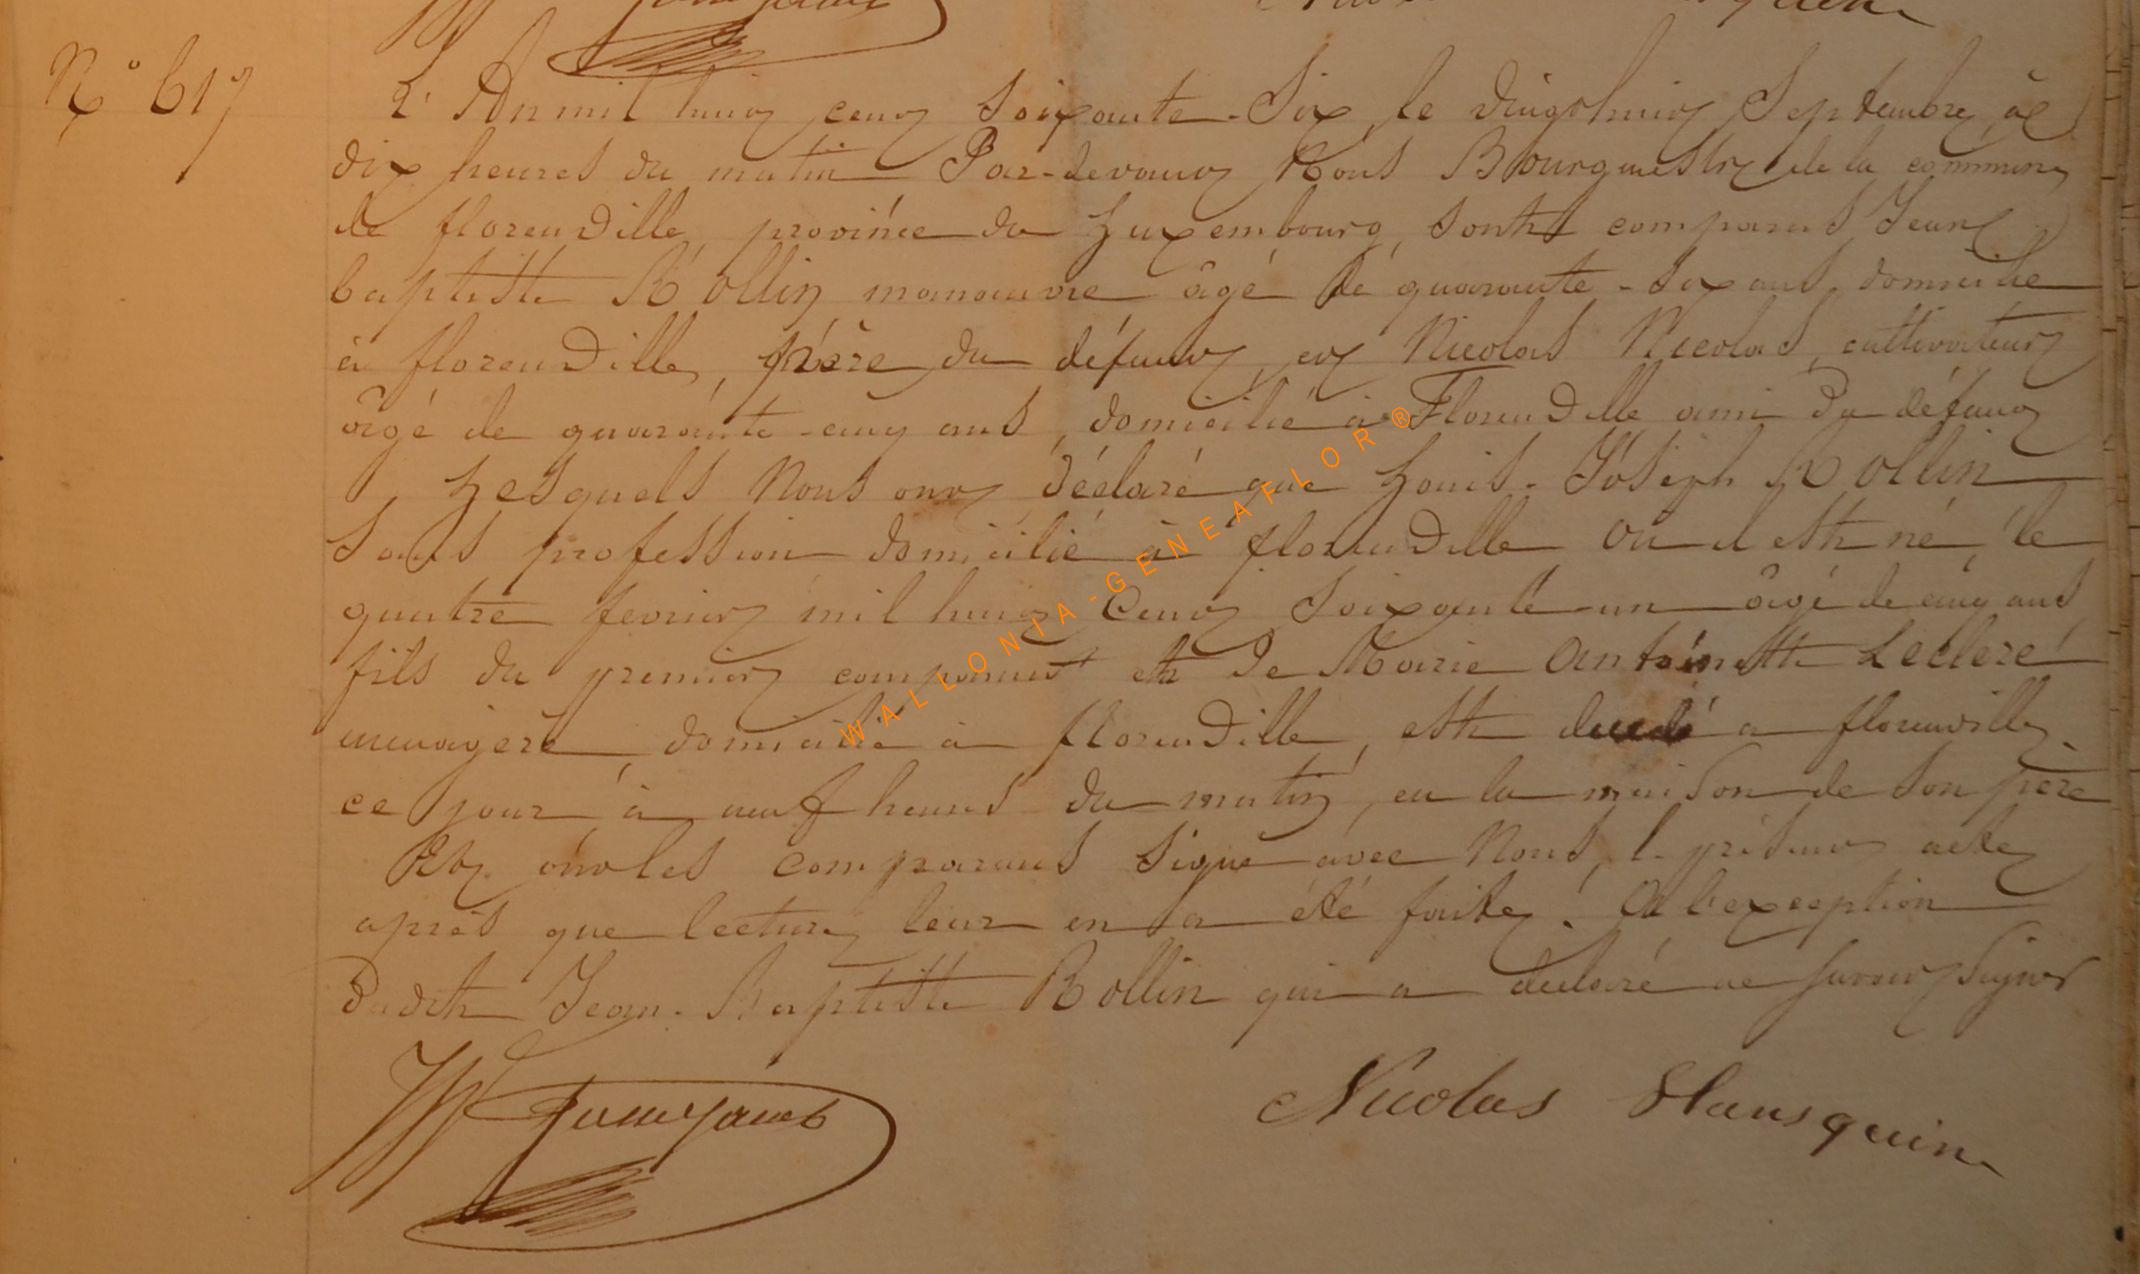 N° 617
L'An mil huit cent Soixante-Six, le vingt huit Septembre, à
dix heures du matin Par-devant Nous Bourgmestre de la commune
de florenville, province du Luxembourg, sont comparus Jean
baptiste Rollin manœuvre âgé de quarante-six ans, domicilié
à florenville, père du défunt, et Nicolas Nicolas, cultivateur
âgé de quarante-cinq ans, domicilié à Florenville ami du défunt
Lesquels Nous ont déclaré que Louis-Joseph Rollin
Sans profession domicilié à florenville où il est né, le
quatre fevrier mil huit Cent Soixante-un âgé de cinq ans,
fils du premier comparant et de Marie Antoinette Leclere
menagère, domicilié à florenville, est decedé a florenville
ce jour à neuf heures du matin, en la maison de son père
Et ont les comparants Signé avec Nous, le présent acte
après que lecture leur en a été faite. A l'exception
dudit Jean-Baptiste Rollin qui a declaré ne savoir signer
Nicolas Hansquin
WALLONIA-GENEAFLOR®